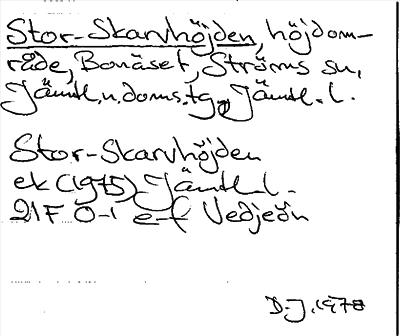 Stor-Skarvhöjden, höjdom-
råde, Bonäset, Ströms sn,
Jämtl. n. doms. tg, Jämtl. l.
Stor-Skarvhöjden
ek (1975) Jämtl. l.
21F 0-1 e-f Vedjeön
D-J. 1978